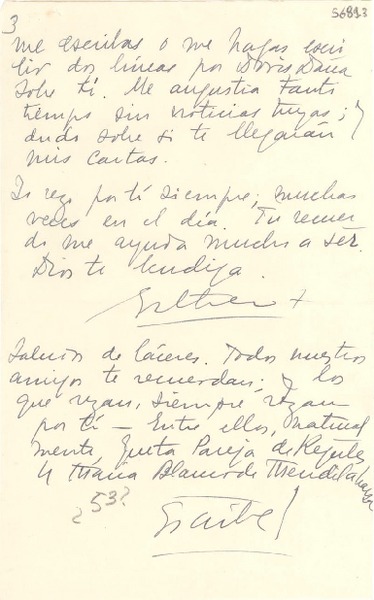 3
56813
me escribas o me hagas escri
bir dos líneas por Doris Dana
sobre tí. Me angustia tanto
tiempo sin noticias tuyas; y
dudo sobre si te llegarán
mis cartas.
Yo rezo por tí siempre; muchas
veces en el día. Tu recuer
do me ayuda mucho a ser.
Dios te bendiga.
Esther +
Saludos de Cáceres. Todos nuestros
amigos te recuerdan; y los
que rezan, siempre rezan
por tí — Entre ellos, natural
mente, Queta Pareja de Regules
y María Blanco de
¿53?
Escribe!